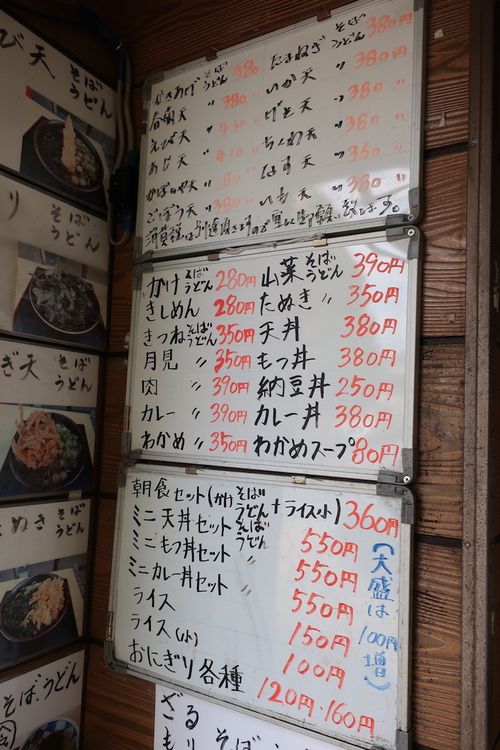 び天 そば
うどん
り そば
うどん
ぎ天 そば
うどん
ぬき そば
うどん
そば.うどん
かきあげ そば うどん 380
春菊天 〃 380
えび天 〃 430
あじ天 〃 430
かぼちゃ天 〃 380
ごぼう天 〃 380
たまねぎ そば うどん 380円
いか天 〃 380円
げそ天 〃 380
ちくわ天 〃 380
なす天 〃 360
いも天 〃 380
かけ そば うどん 280円
きしめん 280円
きつね そば うどん 350円
月見 〃 350円
肉 〃 390円
カレー 〃 390円
わかめ 〃 350円
山菜 そば うどん 390円
たぬき 〃 350円
天丼 380円
もつ丼 380円
納豆丼 250円
カレー丼 380円
わかめスープ 80円
朝食セット(かけ そば うどん +ライス小) 360円
ミニ天丼セット そば うどん 550円
ミニもつ丼セット 〃 550円
ミニカレー丼セット 〃 550円
ライス 150円
ライス(小) 100円
おにぎり各種 120円・160円
(大盛は100円増)
ざる
もり そば